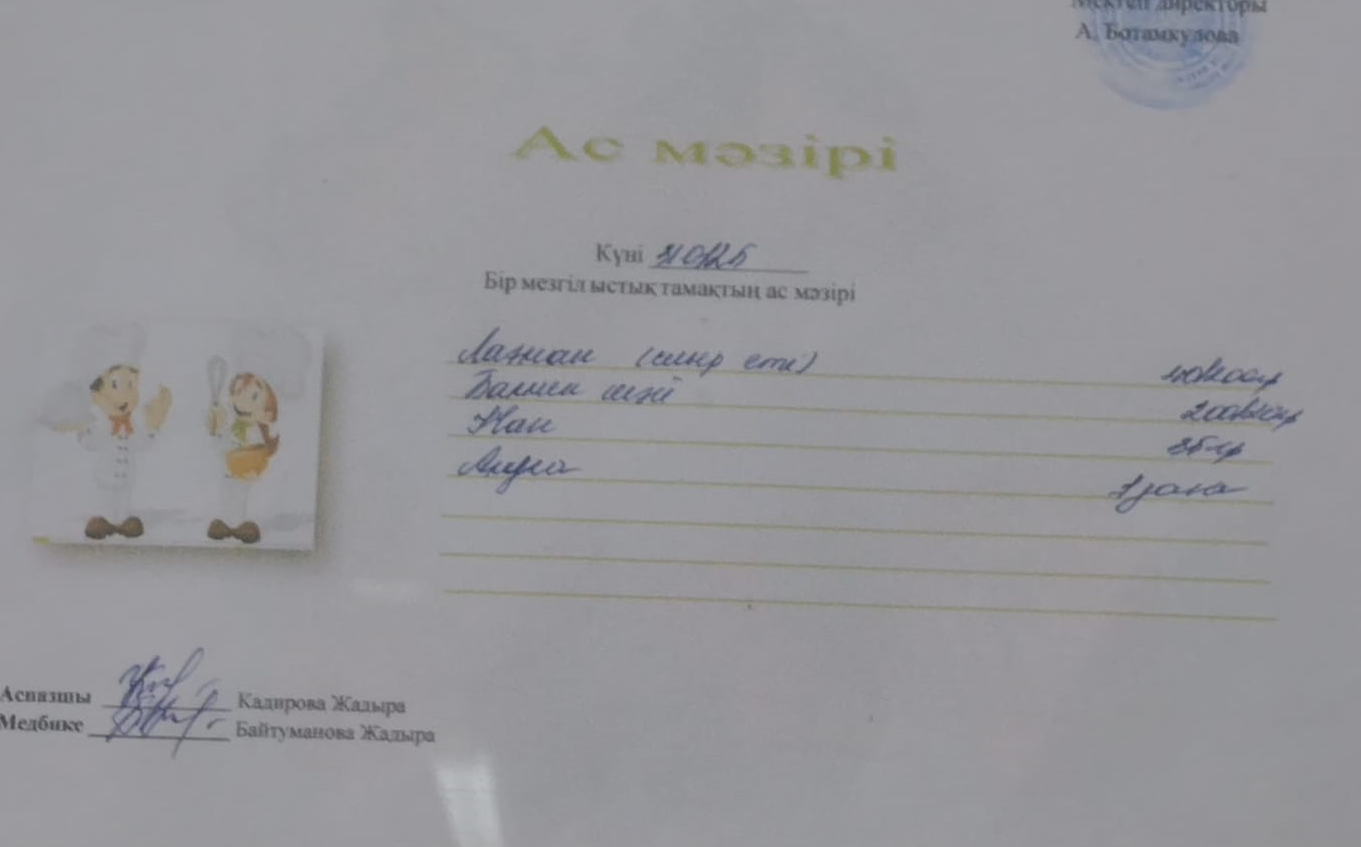 Мектеп директоры
А. Ботамкулова
Ас мәзірі
Күні
Бір мезгіл ыстық тамақтың ас мәзірі
Лагман (сиыр еті)
Нан
Алма 1 дана
Аспазшы Кадирова Жадыра
Медбике Байтуманова Жадыра